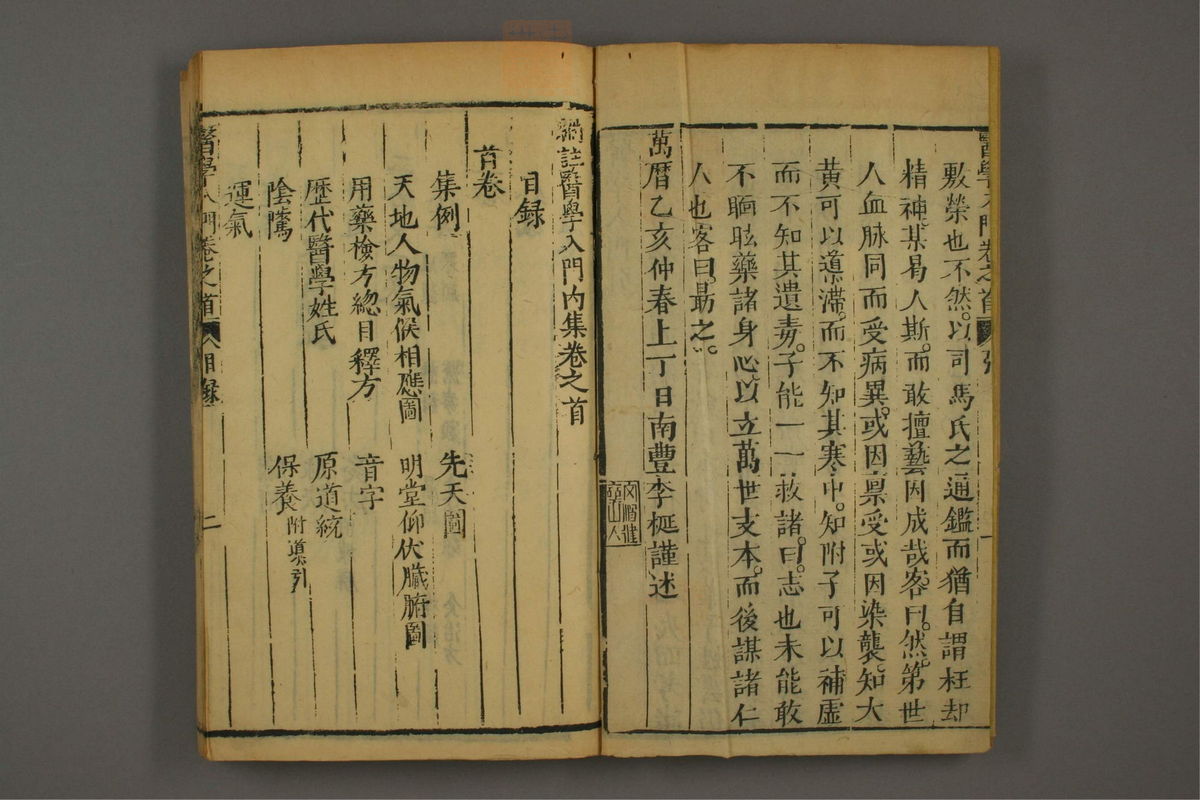 醫學入門卷之首 引 一
敷榮也不然以司馬氏之通鑑而猶自謂枉却
精神某曷人斯而敢擅藝因成哉客曰然第世
人血脉同而受病異或因禀受或因染襲知大
黃可以導滯而不知其寒中知附子可以補虛
而不知其遺毒子能一一救諸曰志也未能敢
不瞑眩藥諸身心以立萬世支本而後謀諸仁
人也客曰勗之
萬曆乙亥仲春上丁日南豐李梴謹述
編註醫學入門內集卷之首
目録
首卷
集例 先天圖
天地人物氣候相應圖 明堂仰伏臟腑圖
用藥檢方總目釋方 音字
歷代醫學姓氏 原道統
陰騭 保養附導引
運氣
醫學入門卷之首 目録 二